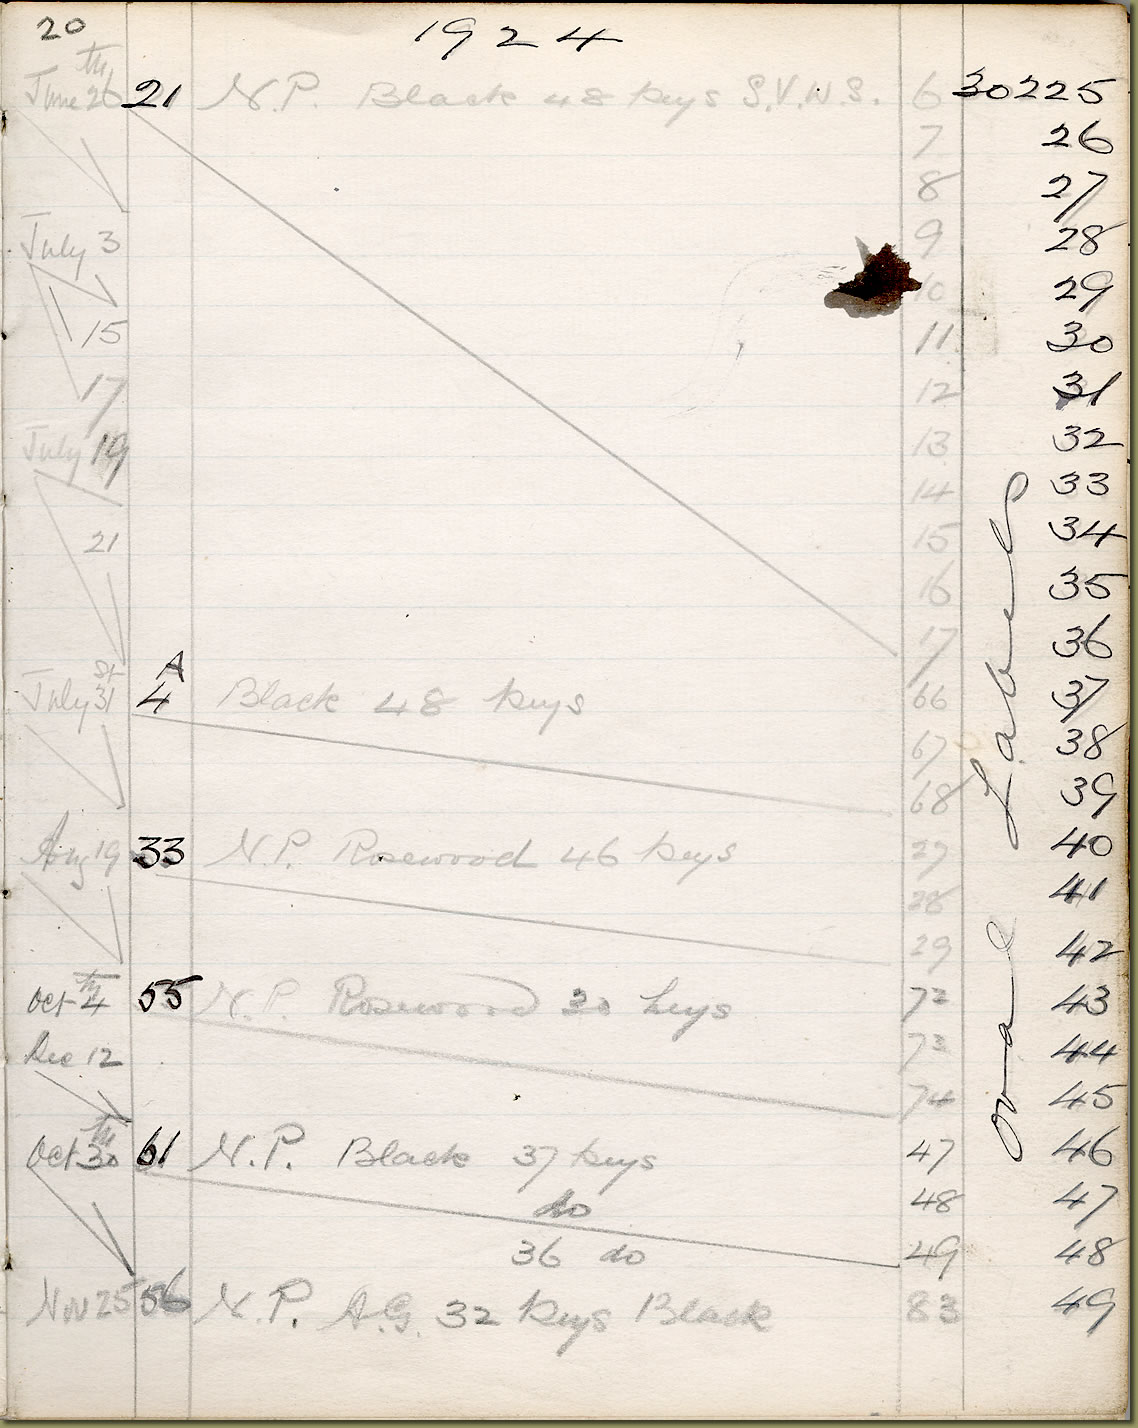 20 1924
June 26th 21 N.P. Black 48 keys S.V.N.S. 6 30225
7 26
8 27
July 3 9 28
10 29
15 11 30
17 12 31
July 19 13 32
14 33
21 15 34
16 35
17 36
A
July 31st 4 Black 48 keys 66 37
67 38
68 39
Aug 19 33 N.P. Rosewood 46 keys 27 40
28 41
29 42
Oct 4th 55 N.P. Rosewood 30 keys 72 43
Dec 12 73 44
74 45
Oct 30th 61 N.P. Black 37 keys 47 46
do 48 47
36 do 49 48
Nov 25 56 N.P. A.G. 32 keys Black 83 49
Oval Labels